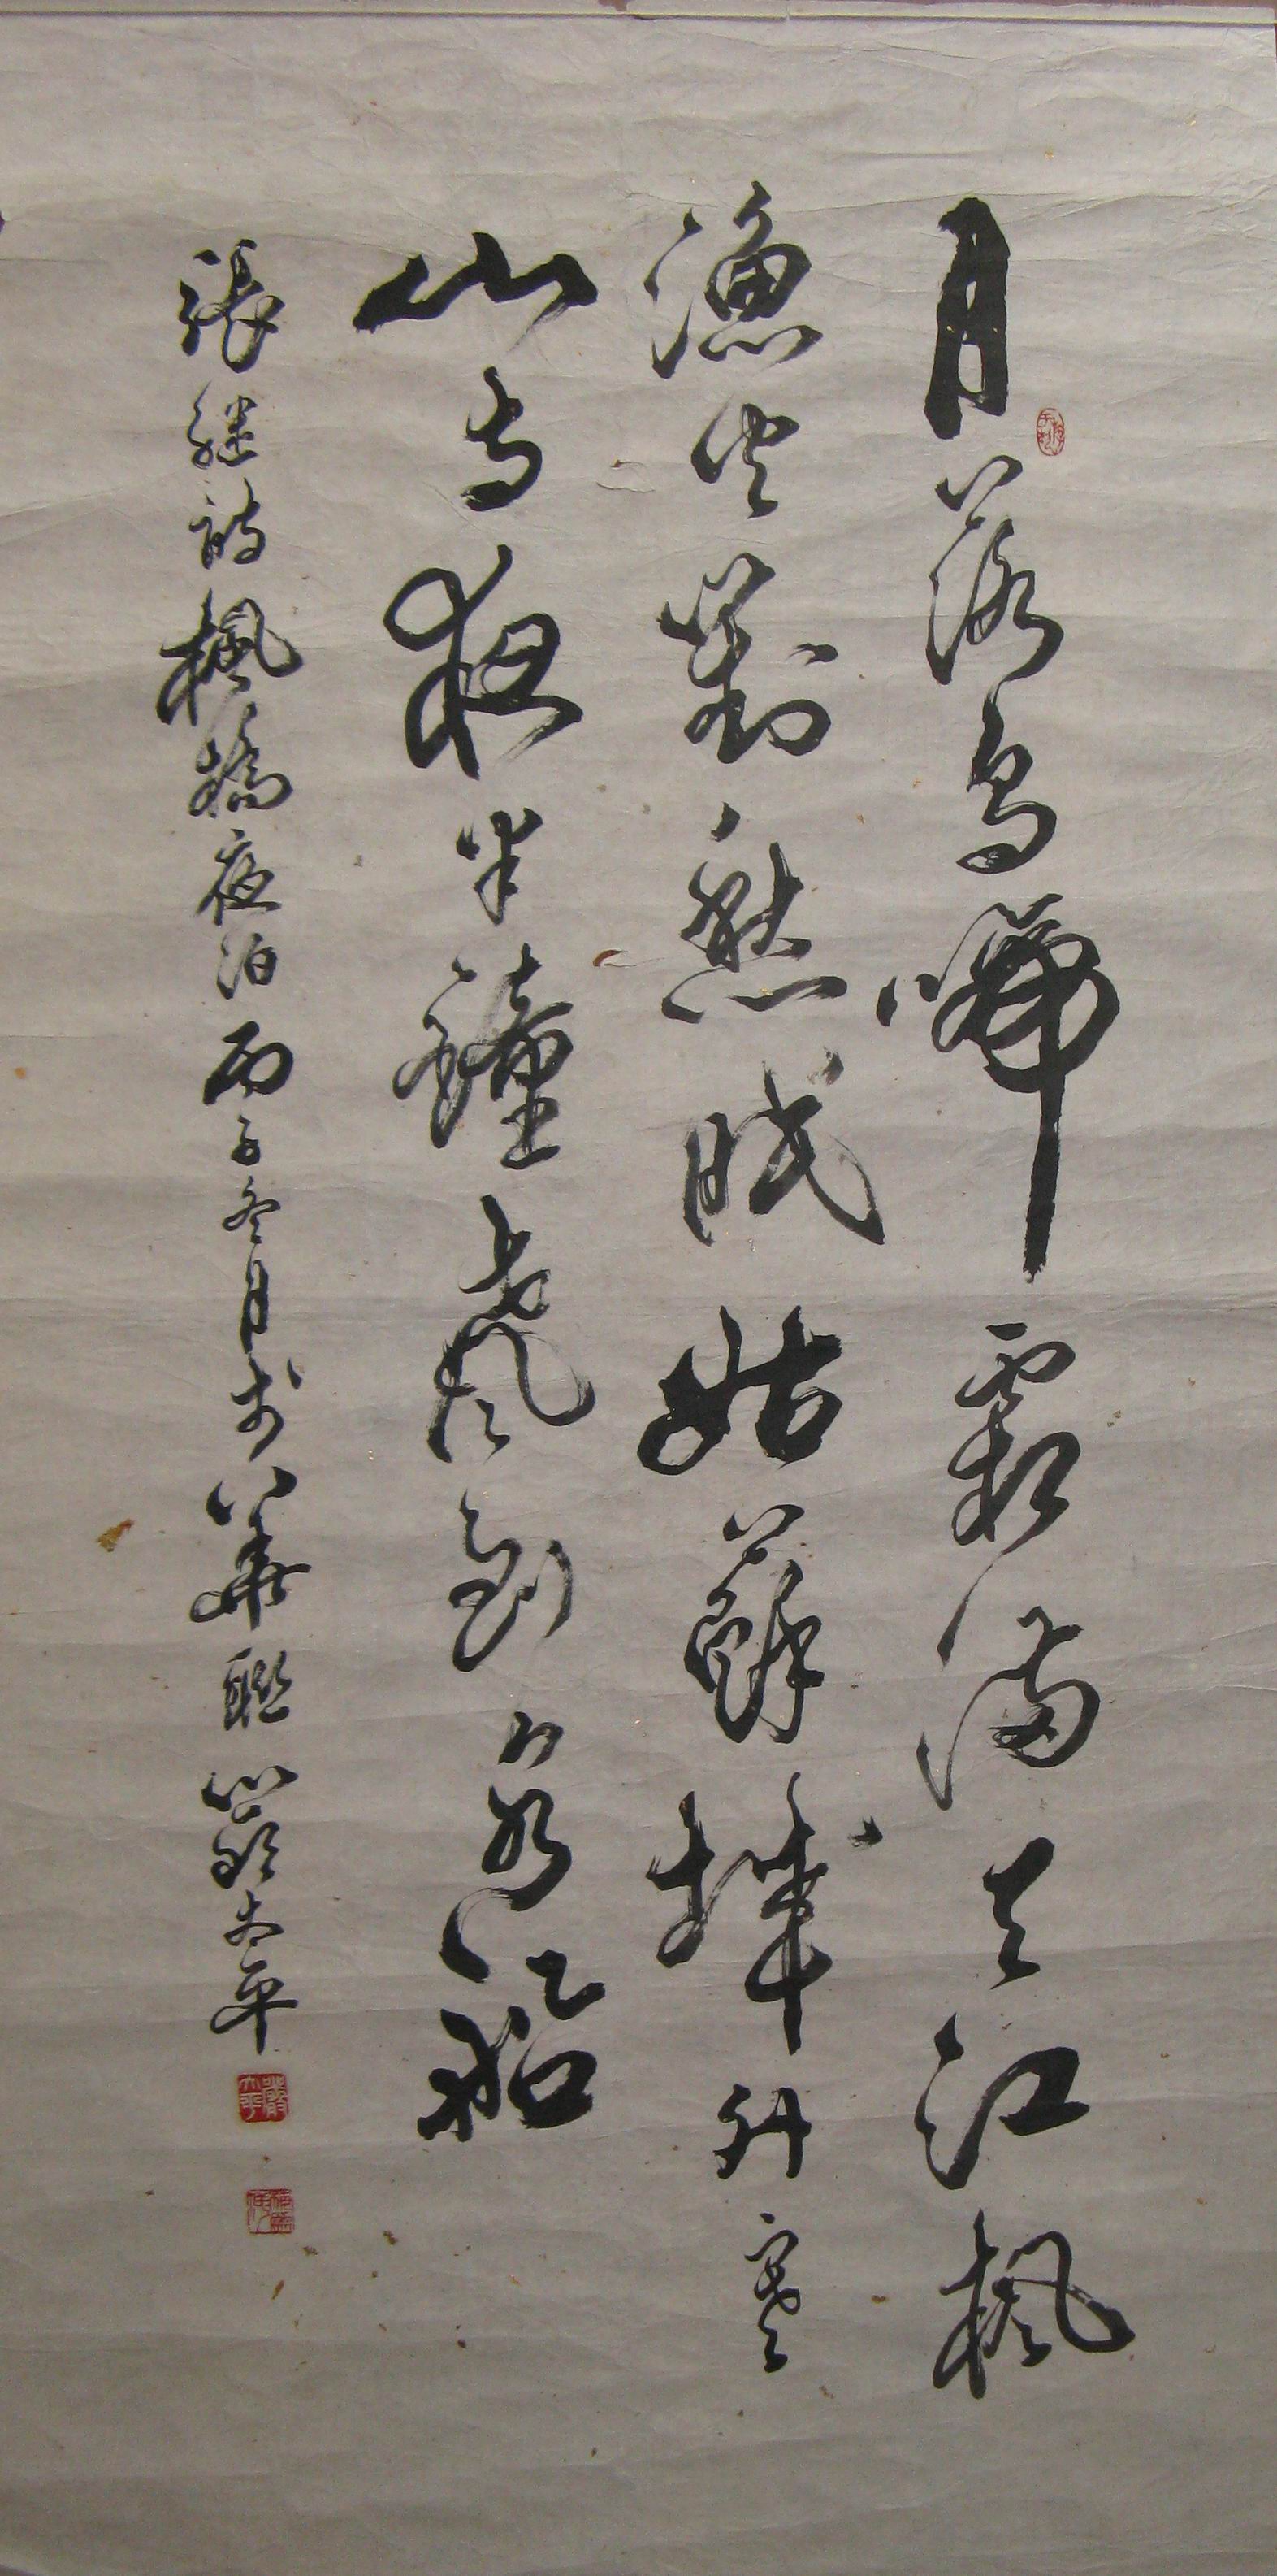 月落烏啼霜滿天江楓
漁火對愁眠姑蘇城外寒
山寺夜半鐘聲到客船
張繼詩楓橋夜泊丙子冬月於華聯嚴太平
嚴太平